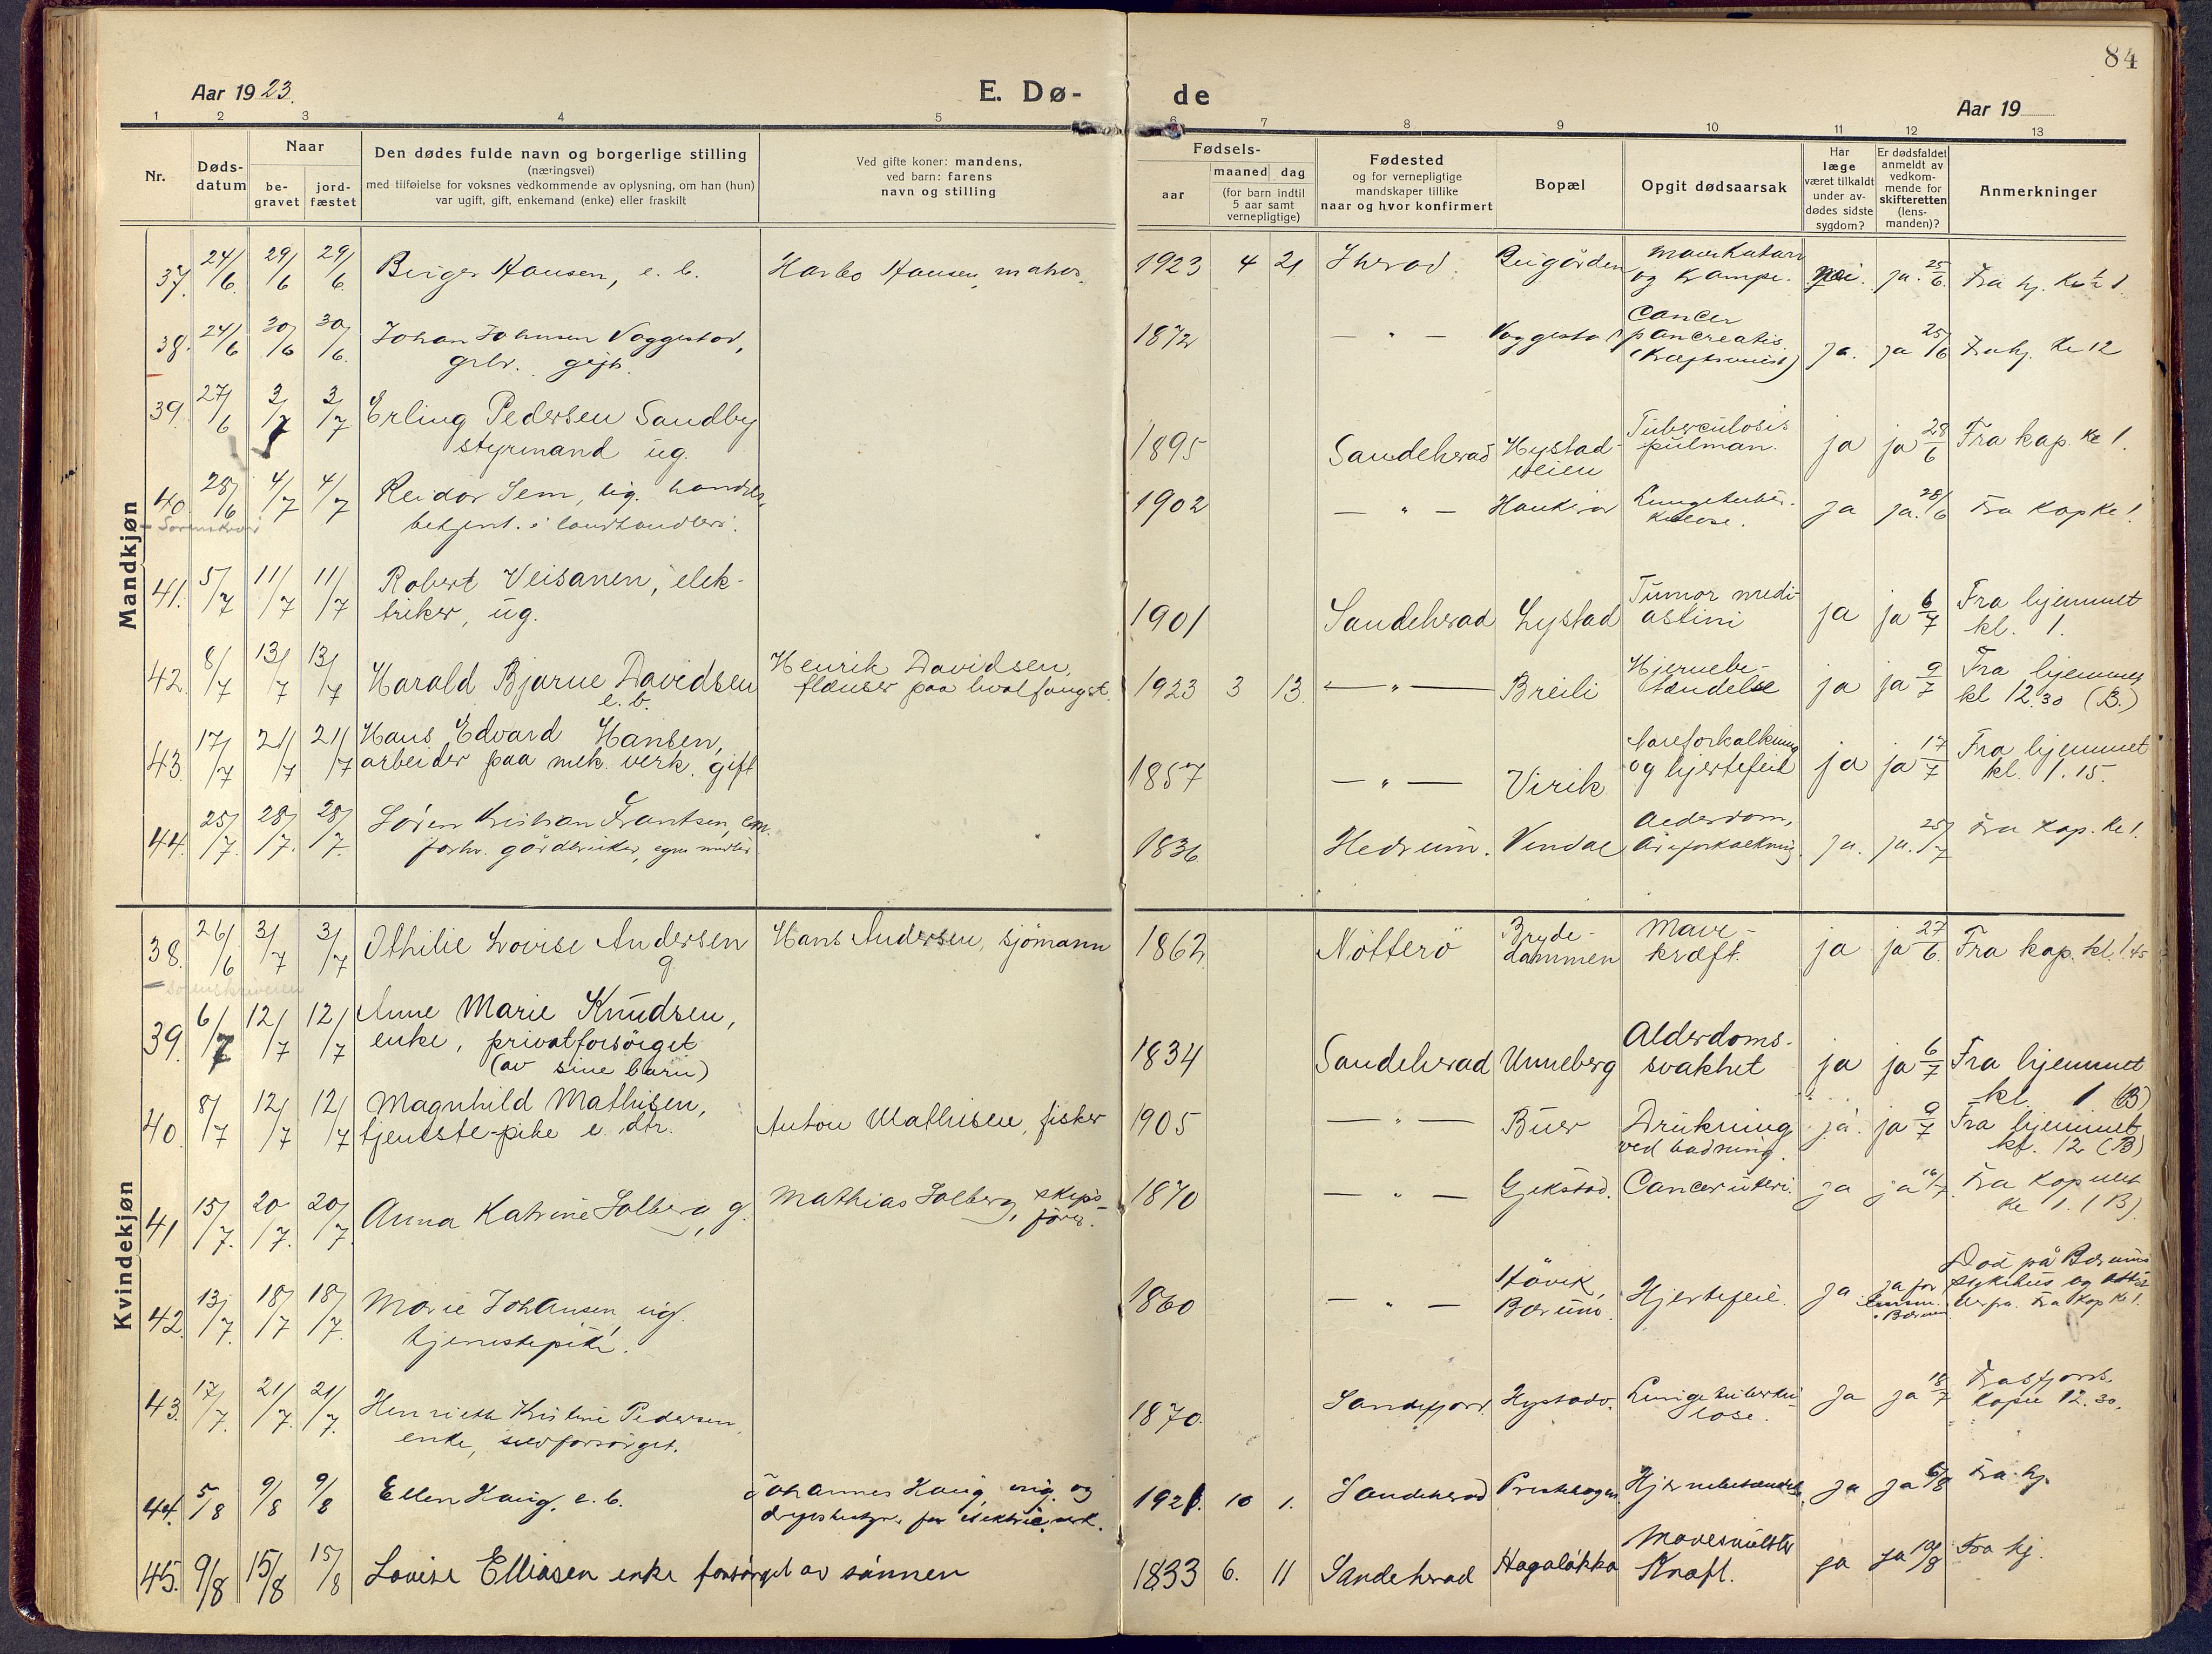 84
Aar 1923.
E. Dø-
de
Aar 19
1 2 3 4 5 6 7 8 9 10 11 12 13
Nr.
Døds-
datum
Naar
be-
gravet
jord-
fæstet
Den dødes fulde navn og borgerlige stilling
(næringsvei)
med tilføielse for voksnes vedkommende av oplysning, om han (hun)
var ugift, gift, enkemand (enke) eller fraskilt
Ved gifte koner: mandens,
ved barn: farens
navn og stilling
Fødsels-
aar
maaned dag
(for barn indtil
5 aar samt
vernepligtige)
Fødested
og for vernepligtige
mandskaper tillike
naar og hvor konfirmert
Bopæl
Opgit dødsaarsak
Har
læge
været tilkaldt
under av-
dødes sidste
sygdom?
Er dødsfaldet
anmeldt av
vedkom-
mende for
skifteretten
(lens-
manden)?
Anmerkninger
Mandkjøn
37. 24/6 29/6 29/6 Birger Hansen, e. b. 1923 4 21 nei. ja. 25/6
og krampe.
38. 24/6 30/6 30/6 Johan Johnsen Vaggestad, 1872 — " — Vaggestad Cancer
pancreatis ja. ja 25/6 Fra hj. kl 12
gbr. gift.
39. 27/6 3/7 3/7 Erling Pedersen Sandby
styrmand ug. 1895 Sandeherad Hystad-
veien Tuberculosis
pulman. ja ja 28/6 Fra kap. kl 1.
40. 28/6 4/7 4/7 Reidar Sem, ug. handels-
betjent i landhandleri. 1902 — " — Haukerød Lungetuber-
kulose. ja ja. 28/6 Fra kap kl 1.
41. 5/7 11/7 11/7 Robert Veisanen, elek-
triker, ug. 1901 Sandeherad Lystad Tumor medi-
astini ja ja 6/7 Fra hjemmet
kl. 1.
42. 8/7 13/7 13/7 Harald Bjarne Davidsen
e. b. Henrik Davidsen,
flænser paa hvalfangst. 1923 3 13. — " — Breili Hjernebe-
tændelse ja ja 9/7 Fra hjemmet
kl 12.30 (B.)
43. 17/7 21/7 21/7 Hans Edvard Hansen,
arbeider paa mek. verk. gift 1857 — " — Virik Aareforkalkning
og hjertefeil ja ja 17/7 Fra hjemmet
kl. 1.15.
44. 25/7. 28/7. 28/7. Søren Kristian Frantsen, em.
forhv. gårdbruker, egne midler 1836 Hedrum. Vindal Alderdom,
Åreforkalkning. ja. ja. 25/7 Fra kap. kl 1.
Kvindekjøn
38. 26/6 3/7 3/7 Othilie Lovise Andersen
g Hans Andersen, sjömann 1862 Nötterö Bryde-
dammen Mave-
kræft. ja ja 27/6. Fra kap. kl. 1.45
Sorenskriveren
39. 6/7 12/7 12/7 Anne Marie Knudsen,
enke, privatforsörget
(av sine barn) 1834 Sandeherad Unneberg Alderdoms-
svakhet ja ja 6/7 Fra hjemmet
kl. 1 (B)
40. 8/7 12/7 12/7 Magnhild Mathisen,
tjeneste-pike e. dtr. Anton Mathisen, fisker 1905 — " — Buer Drukning
ved badning. ja. ja 9/7 Fra hjemmet
kl. 12 (B)
41 15/7. 20/7. 20/7. Anna Katrine Solberg, g. Mathias Solberg, skips-
fører. 1870 — " — Gjekstad. Cancer uteri. ja ja 16/7. Fra kapellet
kl 1. (B).
42. 13/7. 18/7 18/7. Marie Johansen, ug.
tjenestepike. 1860 — " — Høvik,
Bærum. Hjertefeil. ja ja for
lensm.
i Bærum Død på Bærums
sykehus og
Fra kap kl 1.
43. 17/7. 21/7. 21/7. Henriette Kristine Pedersen,
enke, selvforsørget. 1870. Sandefjord. Hystadv. Lungetuberku-
lose. ja ja 18/7
kapel 12.30.
44. 5/8 9/8 9/8 Ellen Haug, e. b. Johannes Haug, ing. og
driftsbestyrer for elektric. verk. 1921. 10 1. Sandeherad Hjernebetændelse. ja ja 6/8 Fra hj.
45. 9/8 15/8 15/8 Lovise Elliasen enke forsørget av sønnen 1833 6. 11 Sandeherad Hagaløkka Kræft. ja ja 10/8 Fra hj.